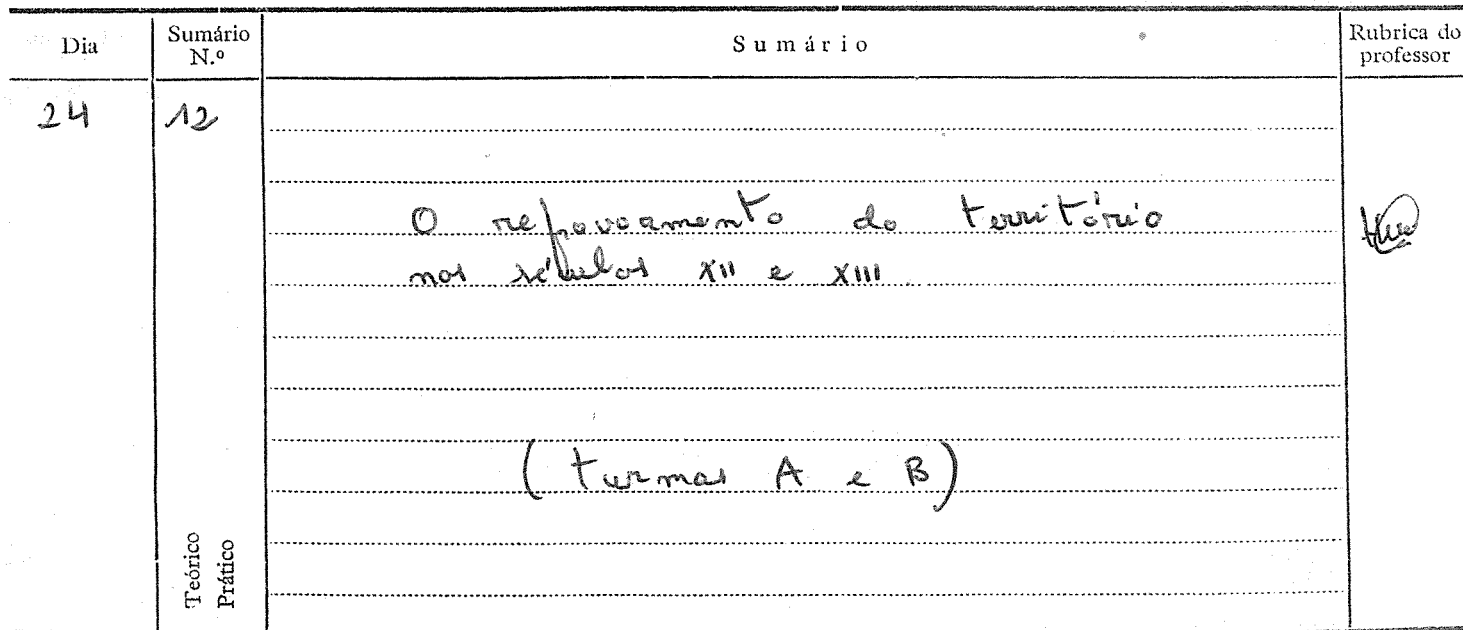 Dia
Sumário N.º
Sumário
Rubrica do professor
24
12
O repovoamento do território
nos séculos XII e XIII.
(turmas A e B)
Teórico
Prático